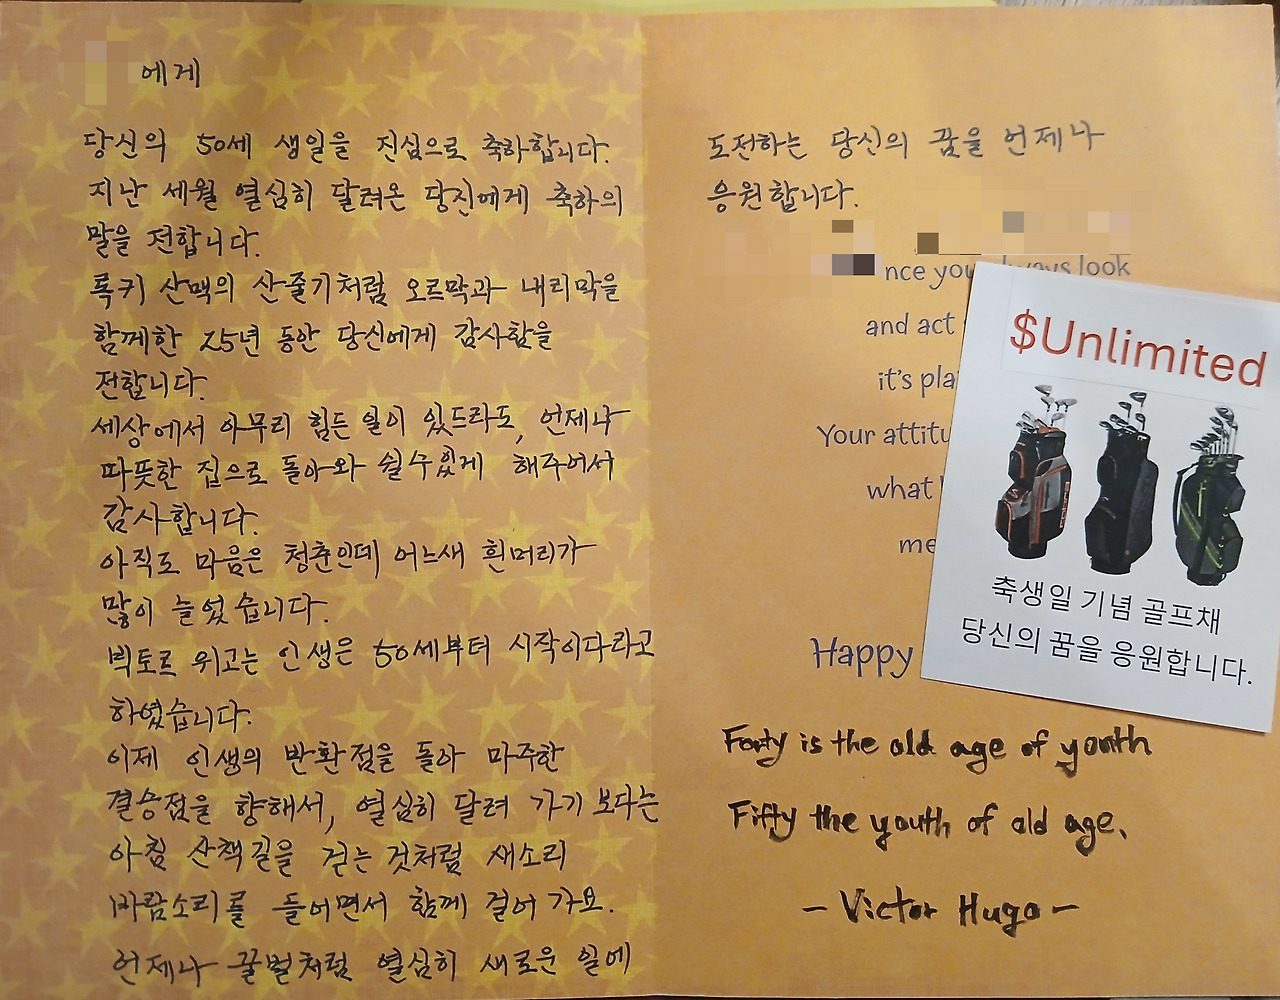 에게
당신의 50세 생일을 진심으로 축하합니다.
지난 세월 열심히 달려온 당신에게 축하의
말을 전합니다.
록키 산맥의 산줄기처럼 오르막과 내리막을
함께한 25년 동안 당신에게 감사함을
전합니다.
세상에서 아무리 힘든 일이 있드라도, 언제나
따뜻한 집으로 돌아와 쉴수있게 해주어서
감사합니다.
아직도 마음은 청춘인데 어느새 흰머리가
많이 늘었습니다.
빅토르 위고는 인생은 50세부터 시작이다라고
하였습니다.
이제 인생의 반환점을 돌아 마주한
결승점을 향해서, 열심히 달려 가기 보다는
아침 산책길을 걷는 것처럼 새소리
바람소리를 들으면서 함께 걸어 가요.
언제나 꿀벌처럼 열심히 새로운 일에
도전하는 당신의 꿈을 언제나
응원합니다.
nce you always look
and act
it's pla
Your attitu
what
me
Happy
$Unlimited
축생일 기념 골프채
당신의 꿈을 응원합니다.
Forty is the old age of youth
Fifty the youth of old age.
- Victor Hugo -